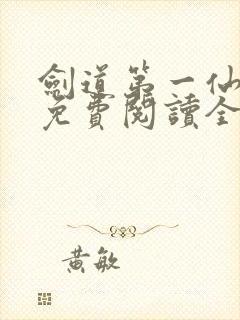 劍道第一仙
免費閱讀全
黃敏